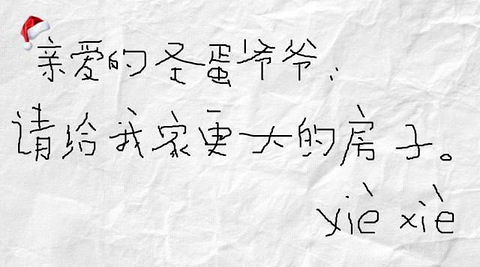 亲爱的圣蛋爷爷：
请给我家更大的房子。
yiè xiè